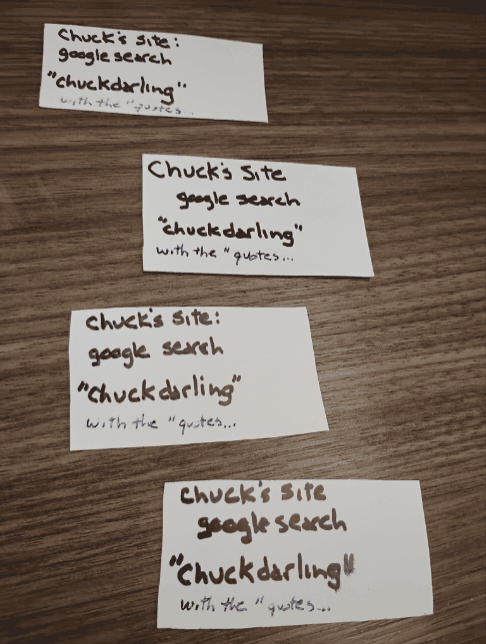 Chuck's Site:
google search
"chuckdarling"
with the "quotes...
Chuck's Site
google search
"chuckdarling"
with the "quotes...
Chuck's Site:
google search
"chuckdarling"
with the "quotes...
Chuck's Site
google search
"chuckdarling"
with the "quotes...